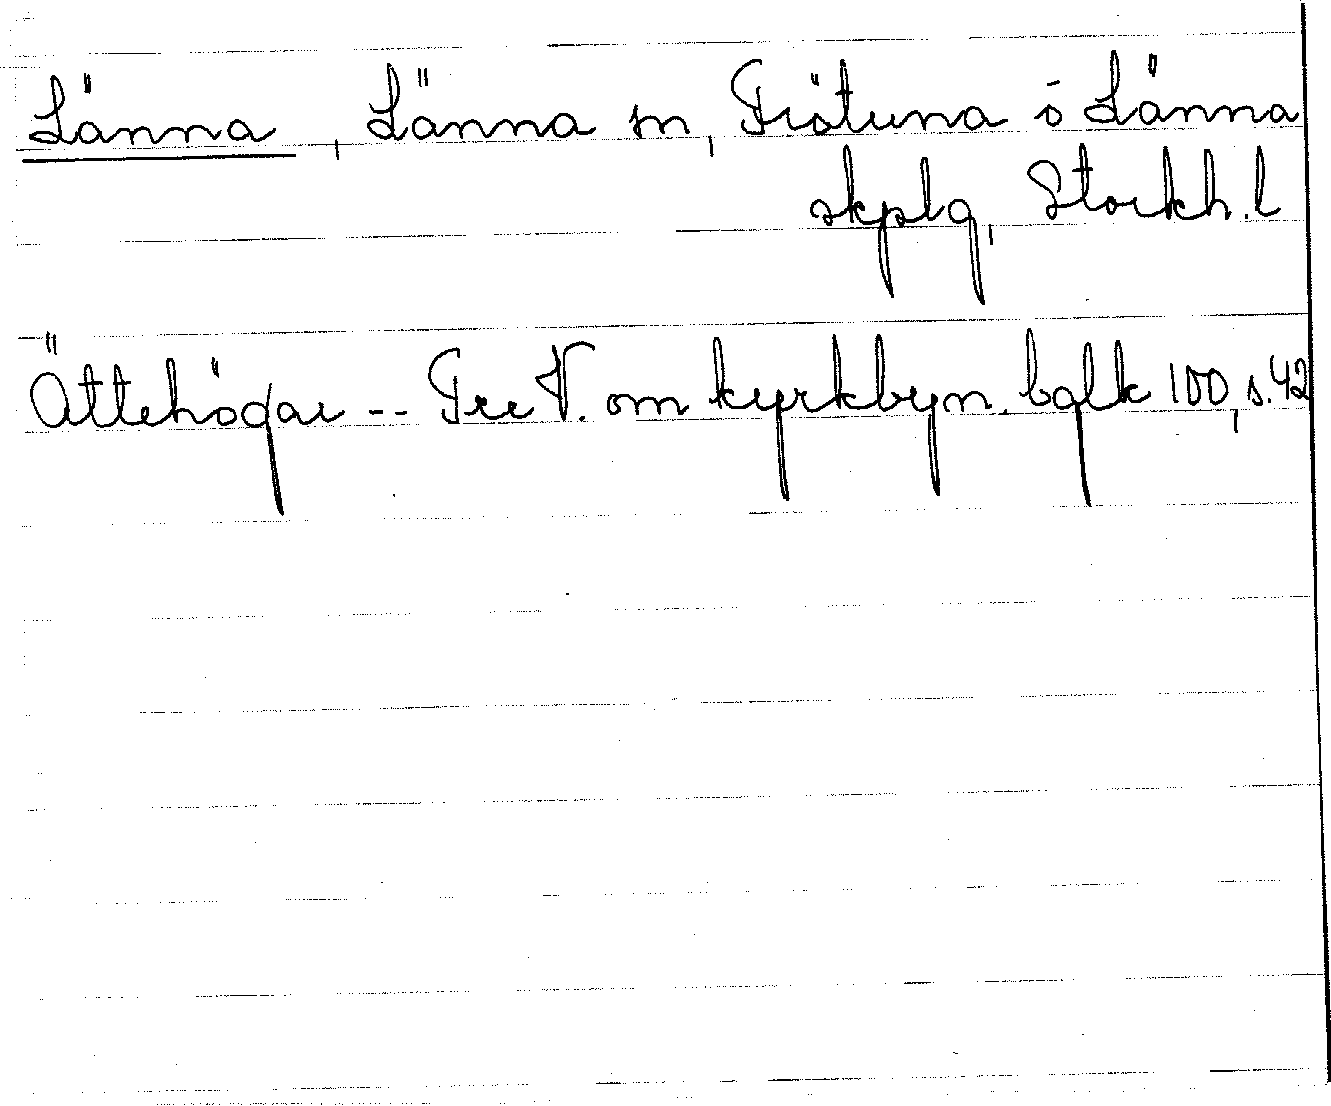 Länna, Länna sn, Frötuna o Länna
skplg, Stockh. l
Ättehögar -- Tre V. om kyrkbyn. bglk 100, s. 42